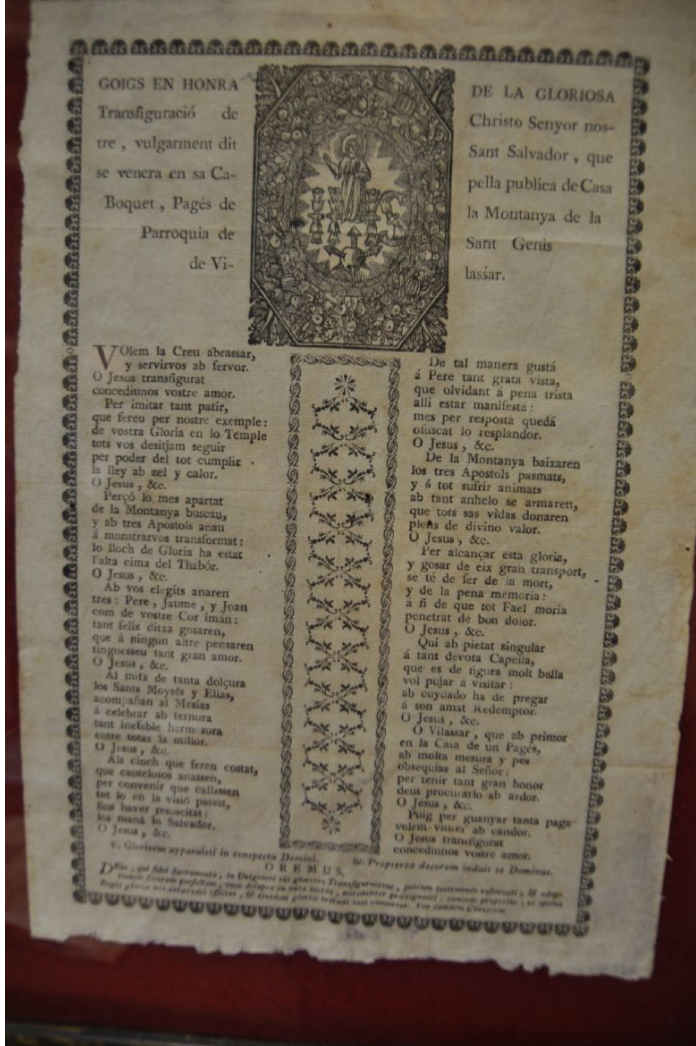 GOIGS EN HONRA DE LA GLORIOSA
Transfiguració de Christo Senyor nos-
tre, vulgarment dit Sant Salvador, que
se venera en sa Ca- pella publica de Casa
Boquet, Pagés de la Montanya de la
Parroquia de Sant Genis
de Vi- lassar.
VOlem la Creu abrassar,
y servirvos ab fervor.
O Jesus transfigurat
concediunos vostre amor.
Per imitar tant patir,
que fereu per nostre exemple:
de vostra Gloria en lo Temple
tots vos desitjam seguir
per poder del tot cumplir
la lley ab zel y calor.
O Jesus, &c.
Perçó lo mes apartat
de la Montanya buscau,
y ab tres Apostols anau
á monstrarvos transformat:
lo lloch de Gloria ha estat
l'alta cima del Thabór.
O Jesus, &c.
Ab vos elegits anaren
tres: Pere, Jaume, y Joan
com de vostre Cor iman:
tant felis ditxa gosaren,
que á ningun altre pensaren
tinguesseu tant gran amor.
O Jesus, &c.
Al mitx de tanta dolçura
los Sants Moysés y Elias,
acompañan al Mesias
á celebrar ab ternura
tant inefable hermosura
entre totas la millor.
O Jesus, &c.
Als cinch que feren costat,
que cautelosos anassen,
per convenir que callessen
tot lo en la visió passat,
fins haver resucitat:
los maná lo Salvador.
O Jesus, &c.
De tal manera gustá
á Pere tant grata vista,
que olvidant á pena trista
allí estar manifesta:
mes per resposta quedá
ofuscat lo resplandor.
O Jesus, &c.
De la Montanya baixaren
los tres Apostols pasmats,
y á tot sufrir animats
ab tant anhelo se armaren,
que tots sas vidas donaren
plens de divino valor.
O Jesus, &c.
Per alcançar esta gloria,
y gosar de eix gran transport,
se té de fer de la mort,
y de la pena memoria:
a fi de que tot Fael moria
penetrat de bon dolor.
O Jesus, &c.
Qui ab pietat singular
á tant devota Capella,
que es de figura molt bella
vol pujar á visitar:
ab cuydado ha de pregar
á son amat Redemptor.
O Jesus, &c.
O Vilassar, que ab primor
en la Casa de un Pagés,
ab molta mesura y pes
obsequias al Señor:
per tenir tant gran honor
deus procurarlo ab ardor.
O Jesus, &c.
Puig per guanyar tanta paga
volem viurer ab candor.
O Jesus transfigurat
concediunos vostre amor.
℣. Gloriosus apparuisti in conspectu Domini. ℟. Propterea decorem induit te Dominus.
OREMUS.
DEus, qui fidei Sacramenta, in Unigeniti tui gloriosa Transfiguratione, patrum testimonio roborasti, & adop-
tionem filiorum perfectam, voce delapsa in nube lucida, mirabiliter præsignasti: concede propitius, ut ipsius
Regis gloriæ nos cohæredes efficias, & ejusdem gloriæ tribuas esse consortes. Per eumdem Christum.